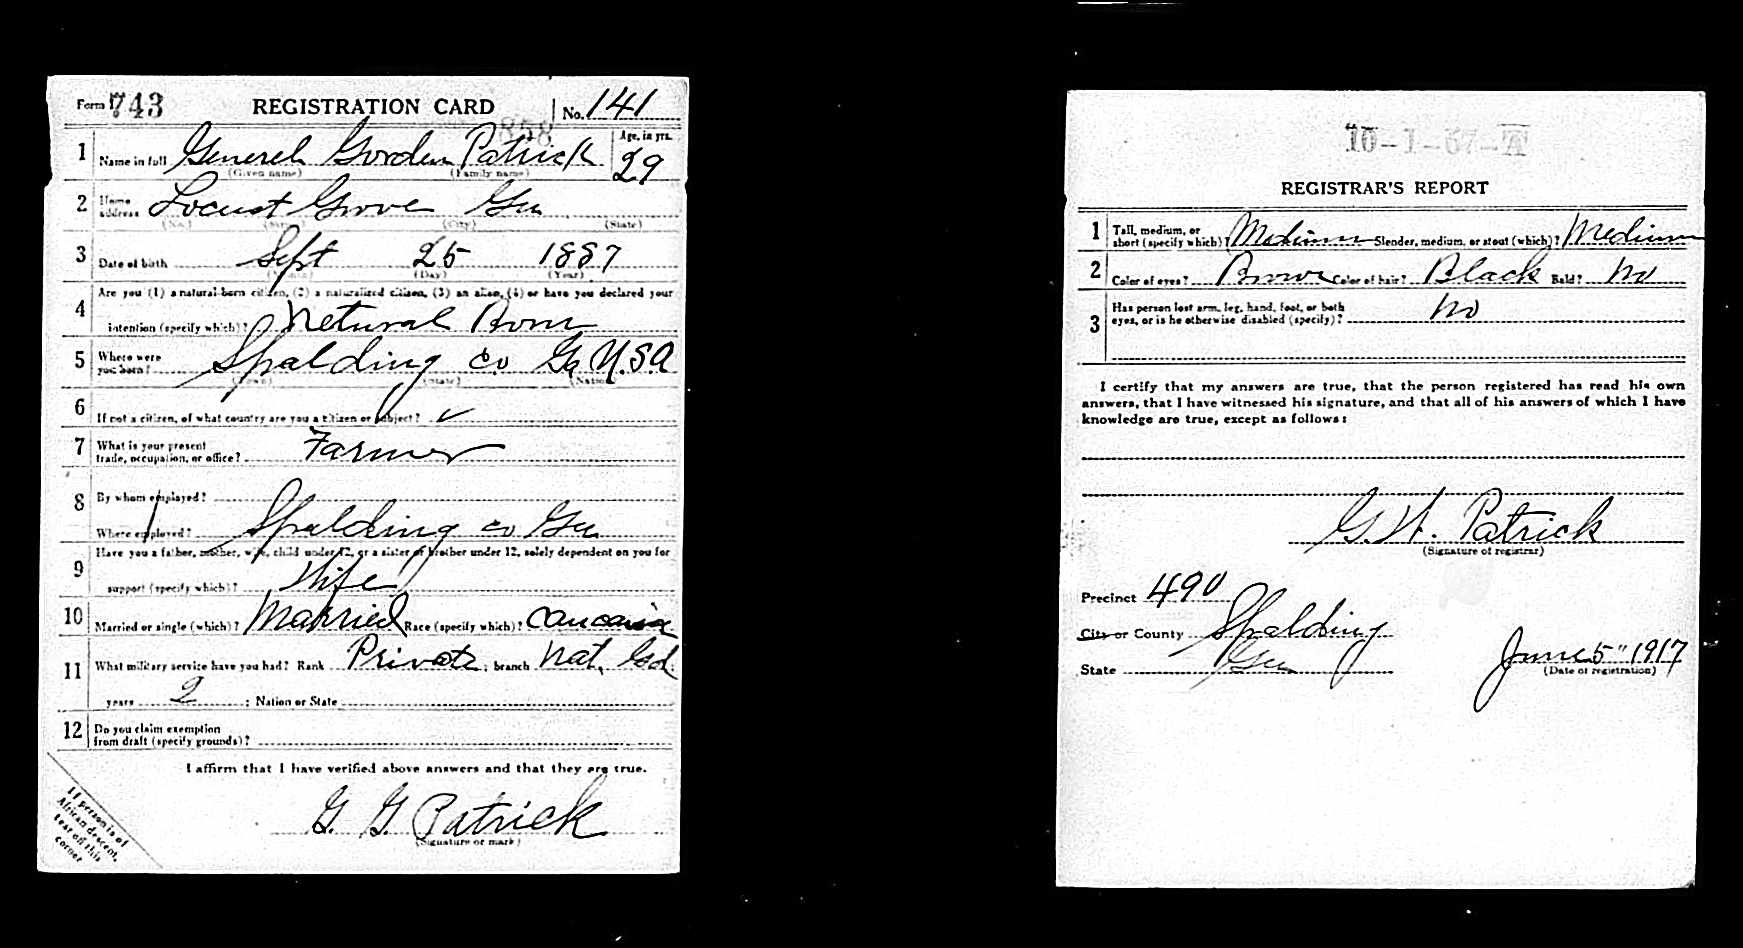 Form 743 REGISTRATION CARD No. 141
858
1 Name in full Generel Gorden Patrick Age, in yrs. 29
(Given name) (Family name)
2 Home address Locust Grove Ga
(No.) (Street) (City) (State)
3 Date of birth Sept 25 1887
(Month) (Day) (Year)
4 Are you (1) a natural-born citizen, (2) a naturalized citizen, (3) an alien, (4) or have you declared your
intention (specify which)? Netural Born
5 Where were you born? Spalding co Ga U.S.A
(Town) (State) (Nation)
6 If not a citizen, of what country are you a citizen or subject? ✓
7 What is your present
trade, occupation, or office? Farmer
8 By whom employed?
Where employed? Spalding co Ga
9 Have you a father, mother, wife, child under 12, or a sister or brother under 12, solely dependent on you for
support (specify which)? Wife
10 Married or single (which)? Married Race (specify which)? Caucasian
11 What military service have you had? Rank Private ; branch Nat. Gd ;
years 2 ; Nation or State
12 Do you claim exemption
from draft (specify grounds)?
I affirm that I have verified above answers and that they are true.
G. G. Patrick
(Signature or mark)
If person is of
African descent,
tear off this
corner
REGISTRAR'S REPORT
1 Tall, medium, or
short (specify which)? Medium Slender, medium, or stout (which)? Medium
2 Color of eyes? Brown Color of hair? Black Bald? No
3 Has person lost arm, leg, hand, foot, or both
eyes, or is he otherwise disabled (specify)? No
I certify that my answers are true, that the person registered has read his own
answers, that I have witnessed his signature, and that all of his answers of which I have
knowledge are true, except as follows:
G. W. Patrick
(Signature of registrar)
Precinct 490
City or County Spalding
State Ga
June 5" 1917
(Date of registration)